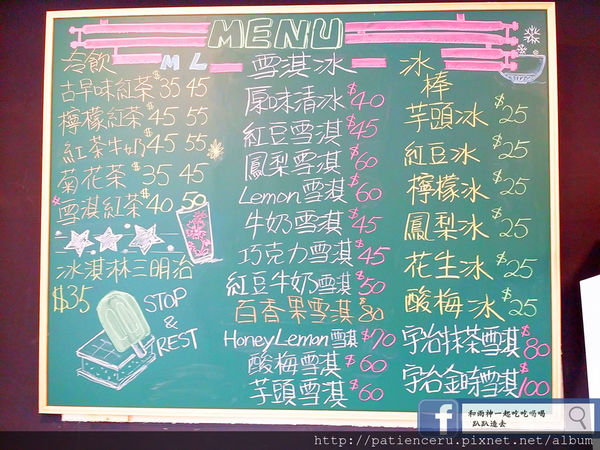 MENU
冷飲 M L
古早味紅茶 $35 45
檸檬紅茶 $45 55
紅茶牛奶 $45 55
菊花茶 $35 45
雪淇紅茶 $40 50
冰淇淋三明治
$35
STOP
&
REST
雪淇冰
原味清冰 $40
紅豆雪淇 $45
鳳梨雪淇 $60
Lemon雪淇 $60
牛奶雪淇 $45
巧克力雪淇 $45
紅豆牛奶雪淇 $50
百香果雪淇 $80
Honey Lemon雪淇 $70
酸梅雪淇 $60
芋頭雪淇 $60
冰棒
芋頭冰 $25
紅豆冰 $25
檸檬冰 $25
鳳梨冰 $25
花生冰 $25
酸梅冰 $25
宇治抹茶雪淇 $80
宇治金時雪淇 $100
f
和雨神一起吃吃喝喝
趴趴造去
http://patienceru.pixnet.net/album